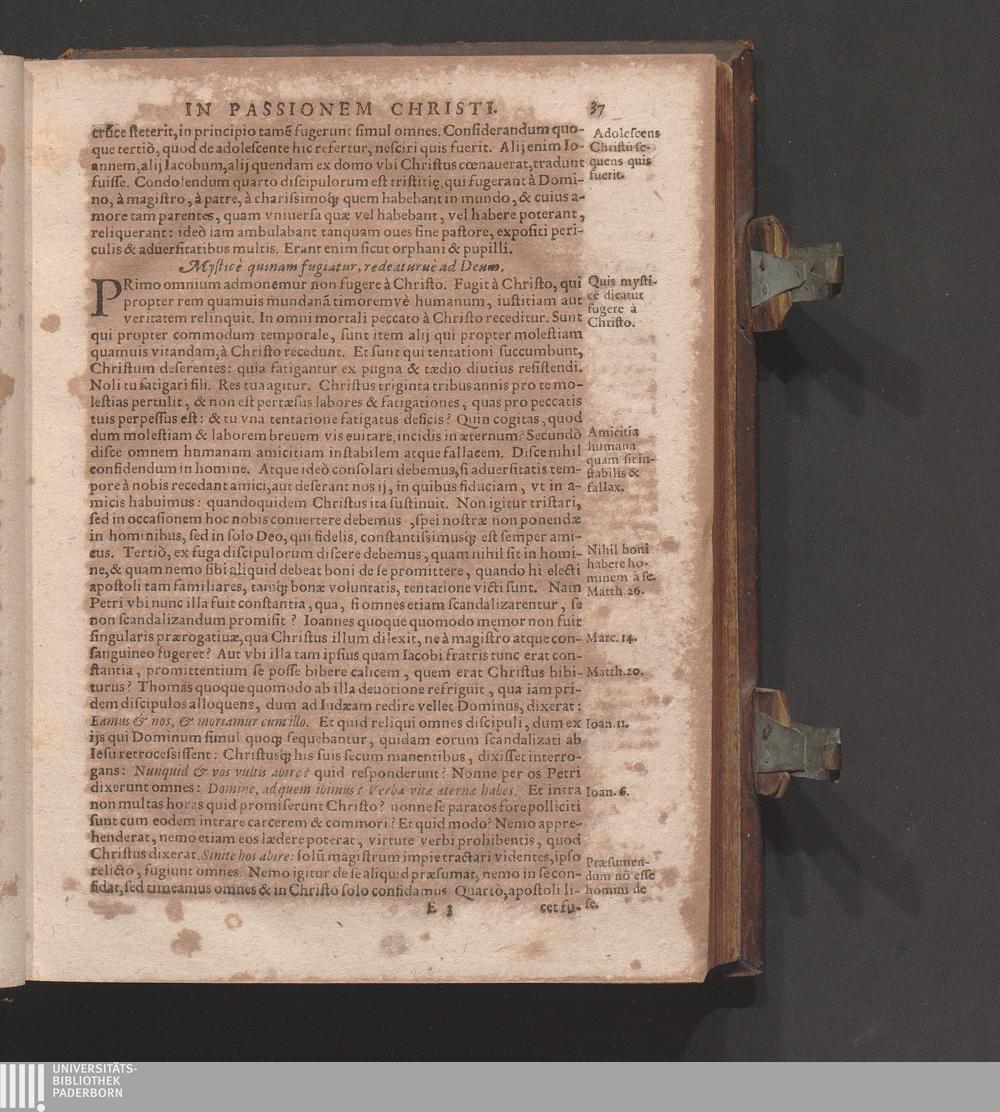 IN PASSIONEM CHRISTI. 37
cruce steterit, in principio tamẽ fugerunt simul omnes. Considerandum quo-
que tertiò, quod de adolescente hic refertur, nesciri quis fuerit. Alij enim Io-
annem, alij Iacobum, alij quendam ex domo vbi Christus cœnauerat, tradunt
fuisse. Condolendum quarto discipulorum est tristitię, qui fugerant à Domi-
no, à magistro, à patre, à charissimoq́; quem habebant in mundo, & cuius a-
more tam parentes, quam vniuersa quæ vel habebant, vel habere poterant,
reliquerant: ideò iam ambulabant tanquam oues sine pastore, expositi peri-
culis & aduersitatibus multis. Erant enim sicut orphani & pupilli.
Adolescens
Christũ se-
quens quis
fuerit.
Mysticè quinam fugiatur, redeaturuè ad Deum.
PRimo omnium admonemur non fugere à Christo. Fugit à Christo, qui
propter rem quamuis mundanã timoremvè humanum, iustitiam aut
veritatem relinquit. In omni mortali peccato à Christo receditur. Sunt
qui propter commodum temporale, sunt item alij qui propter molestiam
quamuis vitandam, à Christo recedunt. Et sunt qui tentationi succumbunt,
Christum deserentes: quia fatigantur ex pugna & tædio diutius resistendi.
Noli tu fatigari fili. Res tua agitur. Christus triginta tribus annis pro te mo-
lestias pertulit, & non est pertæsus labores & fatigationes, quas pro peccatis
tuis perpessus est: & tu vna tentatione fatigatus deficis? Quin cogitas, quod
dum molestiam & laborem breuem vis euitare, incidis in æternum? Secundò
disce omnem humanam amicitiam instabilem atque fallacem. Disce nihil
confidendum in homine. Atque ideò consolari debemus, si aduersitatis tem-
pore à nobis recedant amici, aut deserant nos ij, in quibus fiduciam, vt in a-
micis habuimus: quandoquidem Christus ita sustinuit. Non igitur tristari,
sed in occasionem hoc nobis conuertere debemus, spei nostræ non ponendæ
in hominibus, sed in solo Deo, qui fidelis, constantissimusq́; est semper ami-
cus. Tertiò, ex fuga discipulorum discere debemus, quam nihil sit in homi-
ne, & quam nemo sibi aliquid debeat boni de se promittere, quando hi electi
apostoli tam familiares, tamq́; bonæ voluntatis, tentatione victi sunt. Nam
Petri vbi nunc illa fuit constantia, qua, si omnes etiam scandalizarentur, se
non scandalizandum promisit? Ioannes quoque quomodo memor non fuit
singularis prærogatiuæ, qua Christus illum dilexit, ne à magistro atque con-
sanguineo fugeret? Aut vbi illa tam ipsius quam Iacobi fratris tunc erat con-
stantia, promittentium se posse bibere calicem, quem erat Christus bibi-
turus? Thomas quoque quomodo ab illa deuotione refriguit, qua iam pri-
dem discipulos alloquens, dum ad Iudæam redire vellet Dominus, dixerat:
Eamus & nos, & moriamur cum illo. Et quid reliqui omnes discipuli, dum ex
ijs qui Dominum simul quoq́; sequebantur, quidam eorum scandalizati ab
Iesu retrocessissent: Christusq́; his suis secum manentibus, dixisset interro-
gans: Nunquid & vos vultis abire? quid responderunt? Nonne per os Petri
dixerunt omnes: Domine, ad quem ibimus? Verba vitæ æternæ habes. Et intra
non multas horas quid promiserunt Christo? nonne se paratos fore polliciti
sunt cum eodem intrare carcerem & commori? Et quid modo? Nemo appre-
henderat, nemo etiam eos lædere poterat, virtute verbi prohibentis, quod
Christus dixerat, Sinite hos abire: solũ magistrum impie tractari videntes, ipso
relicto, fugiunt omnes. Nemo igitur de se aliquid præsumat, nemo in se con-
fidat, sed timeamus omnes & in Christo solo confidamus Quartò, apostoli li-
E 3 cet fu-
Quis mysti-
cè dicatur
fugere à
Christo.
Amicitia
humana
quam sit in-
stabilis &
fallax.
Nihil boni
habere ho-
minem à se.
Matth. 26.
Marc. 14.
Matth. 20.
Ioan. 11.
Ioan. 6.
Præsumen-
dum nõ esse
homini de
se.
UNIVERSITÄTS-
BIBLIOTHEK
PADERBORN